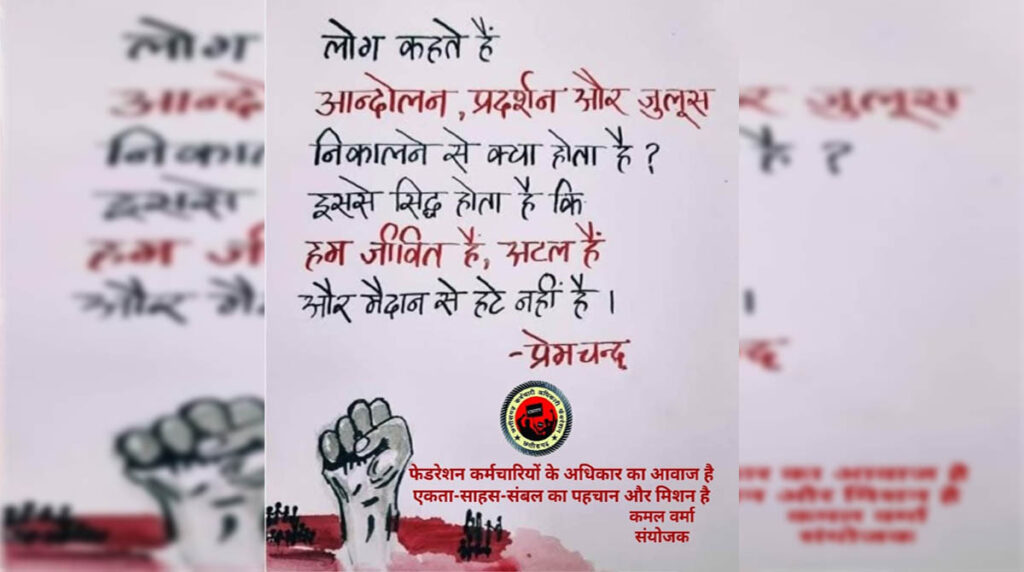 लोग कहते हैं
आन्दोलन, प्रदर्शन और जुलूस
निकालने से क्या होता है ?
इससे सिद्ध होता है कि
हम जीवित हैं, अटल हैं
और मैदान से हटे नहीं है ।
-प्रेमचन्द
फेडरेशन कर्मचारियों के अधिकार का आवाज है
एकता-साहस-संबल का पहचान और मिशन है
कमल वर्मा
संयोजक